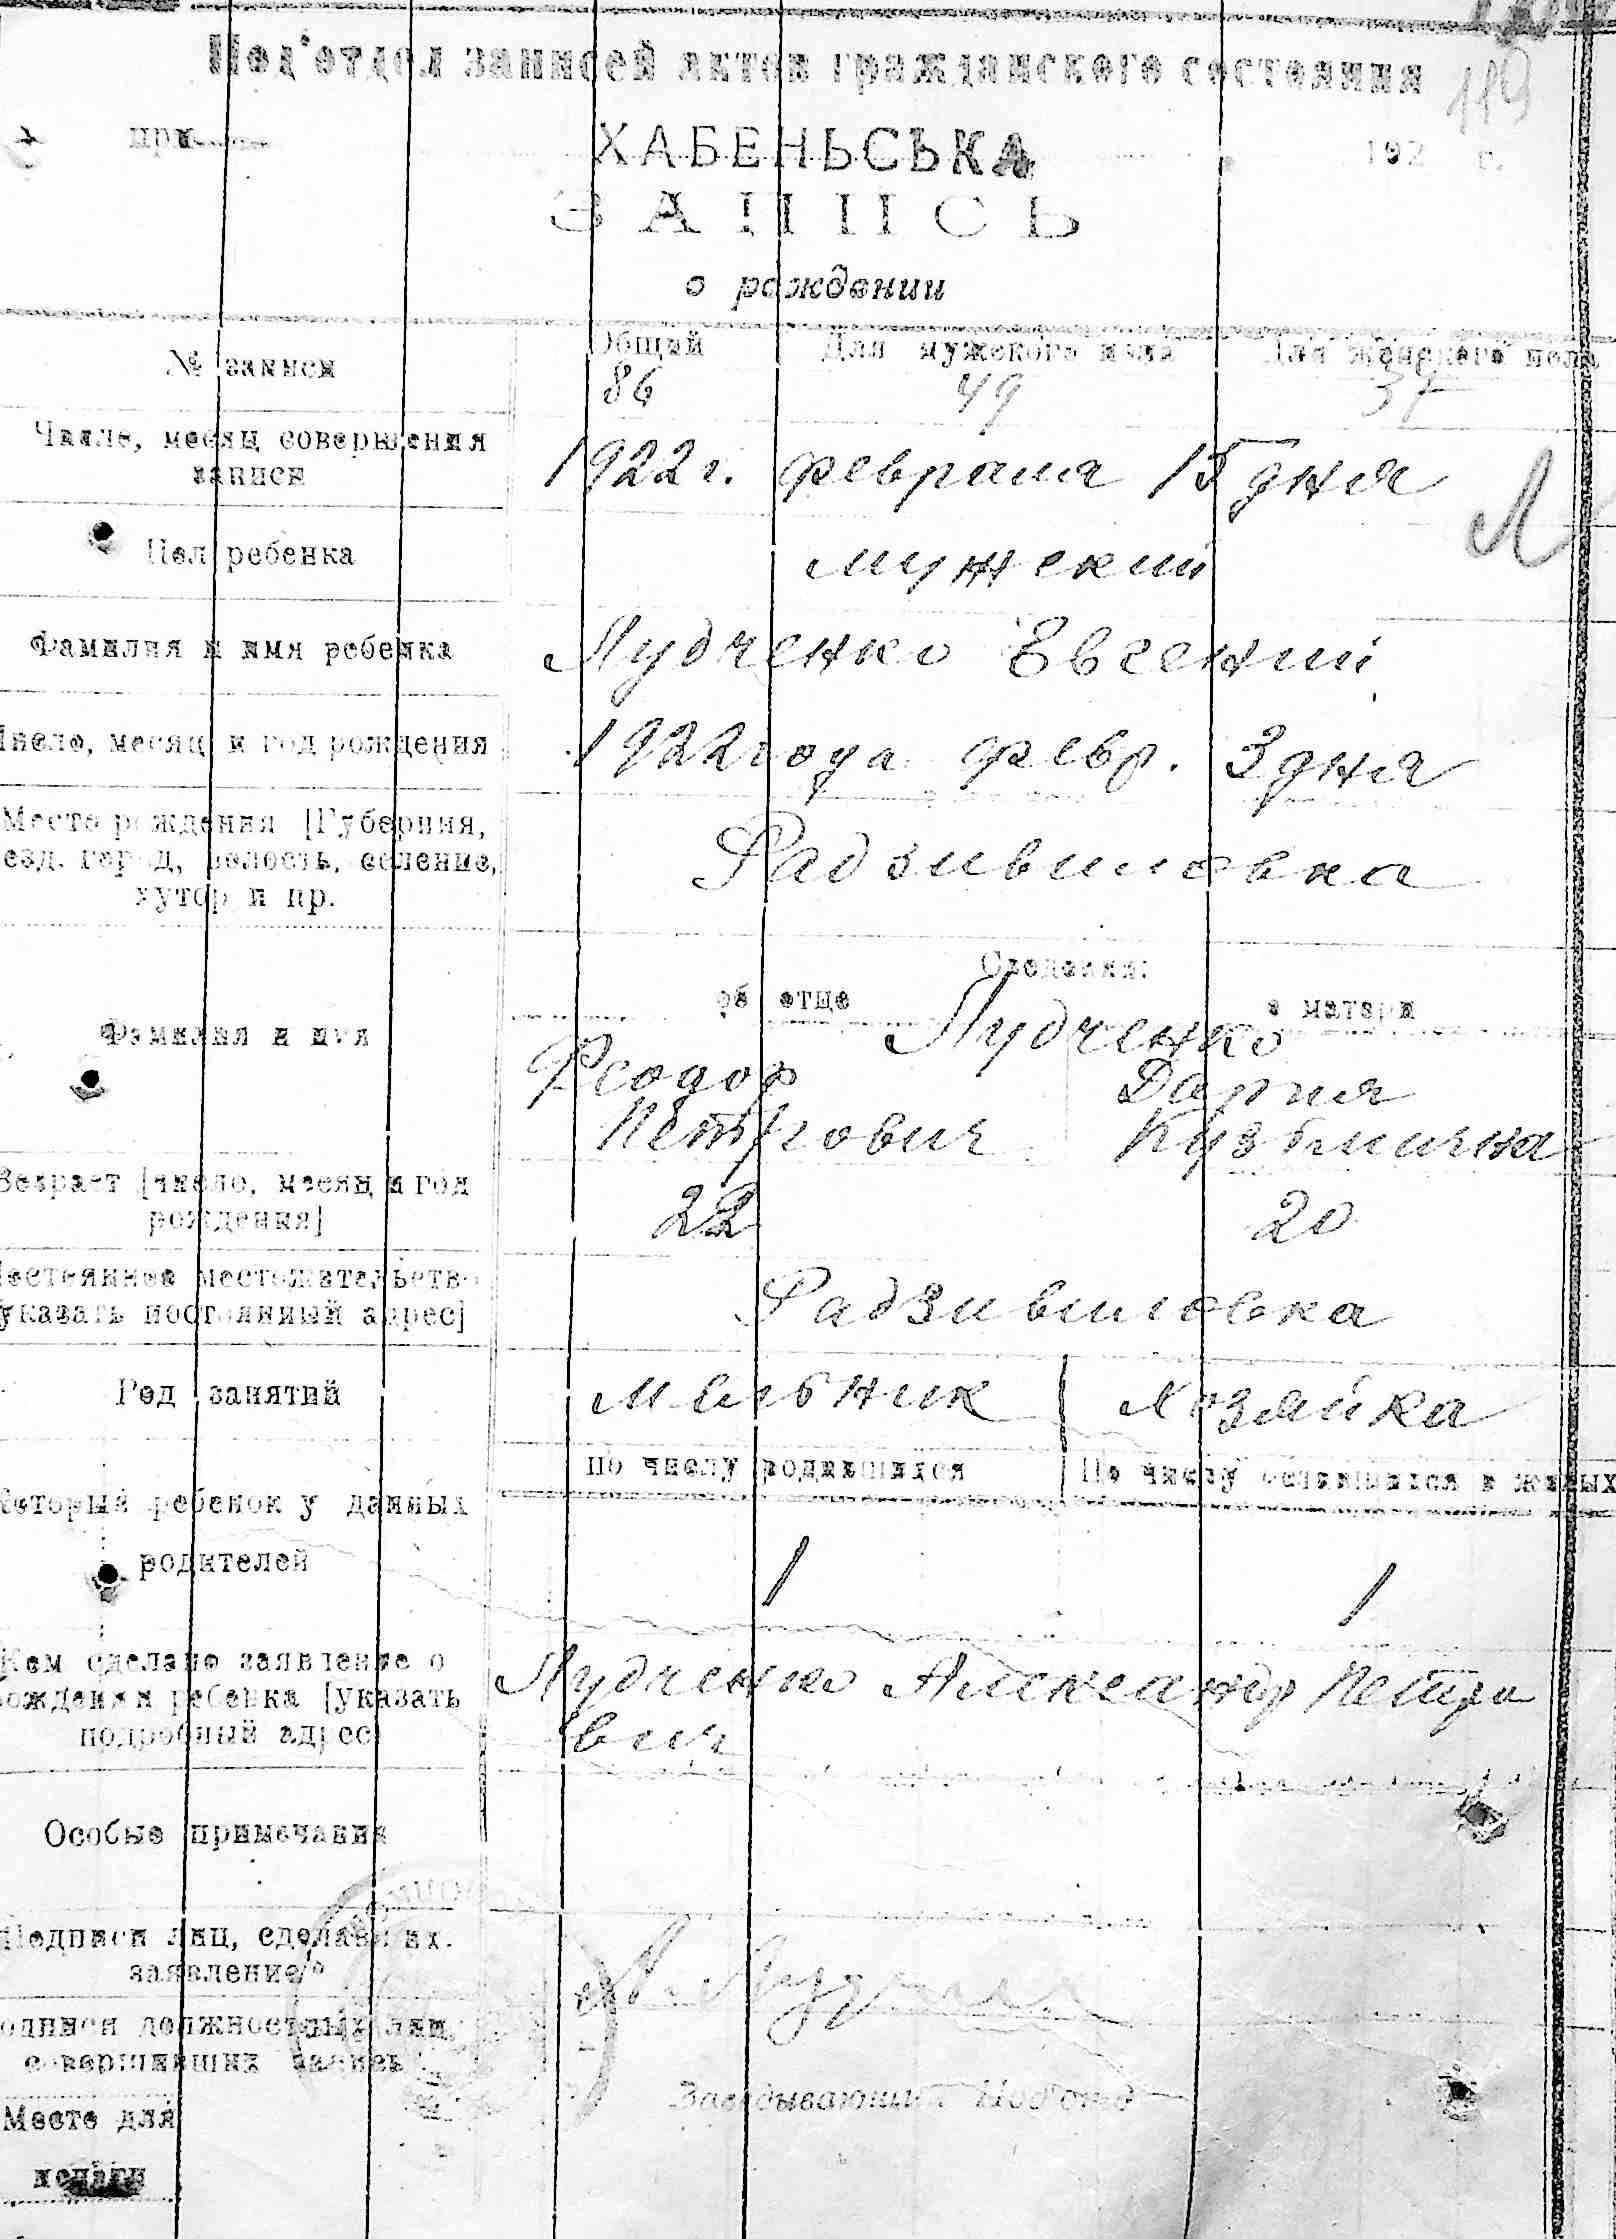 Под'отдел записей актов гражданского состояния
119
при
ХАБЕНЬСЬКА
192 г.
ЗАПИСЬ
о рождении
№ записи
Общий
Для мужского пола
Для женского пола
86
49
37
Число, месяц совершения
записи
1922 г. февраля 15 дня
Л
Пол ребенка
мужекий
Фамилия и имя ребенка
Лудченко Евгений
Число, месяц и год рождения
1922 года февр. 3 дня
Место рождения [Губерния,
езд. город, волость, селение,
хутор и пр.
Радзивиловка
Сведения:
об отце
о матери
Фамилия и имя
Лудченко
Феодор
Дария
Петрович
Кузьмична
Возраст [число, месяц и год
рождения]
22
20
Постоянное местожительство
[указать постоянный адрес]
Радзивиловка
Род занятий
Мельник
Хозяйка
По числу родившихся
По числу оставшихся в живых
Который ребенок у данных
родителей
1
1
Кем сделано заявление о
рождении ребенка [указать
подробный адрес
Лудченко Александр Петро
вич
Особые примечания
Подписи лиц, сделавших.
заявление
А. Лудченко
Подписи должностных лиц,
совершивших запись
Заведывающий Под'отд
Место для
печати